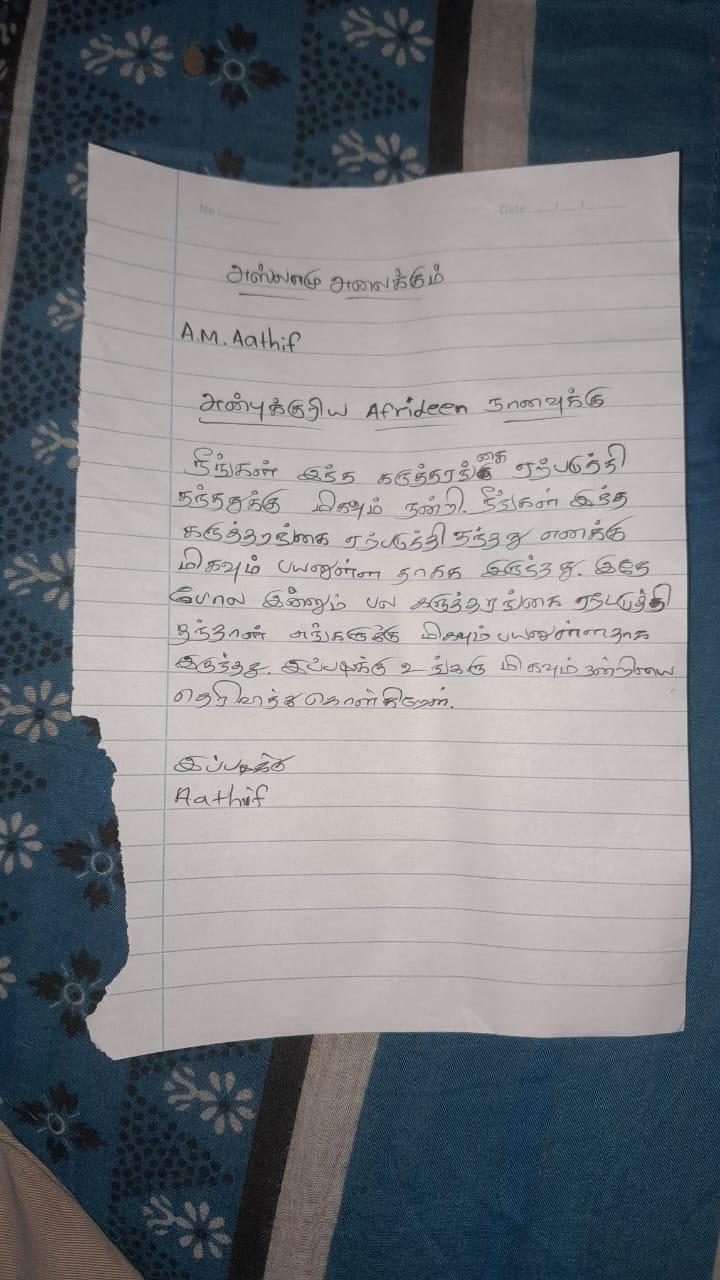 No:
Date: __/__/__
அஸ்ஸலாமு அலைக்கும்
A.M. Aathif
அன்புக்குரிய Afrideen நானாவுக்கு
நீங்கள் இந்த கருத்தரங்கை ஏற்படுத்தி
தந்ததுக்கு மிகவும் நன்றி. நீங்கள் இந்த
கருத்தரங்கை ஏற்படுத்தி தந்தது எனக்கு
மிகவும் பயனுள்ள தாக இருந்தது. இதே
போல இன்னும் பல கருத்தரங்கை ஏற்படுத்தி
தந்தால் எங்களுக்கு மிகவும் பயனுள்ளதாக
இருந்தது. இப்படிக்கு உங்களு மிகவும் நன்றியை
தெரிவித்து கொள்கிறேன்.
இப்படிக்கு
Aathif